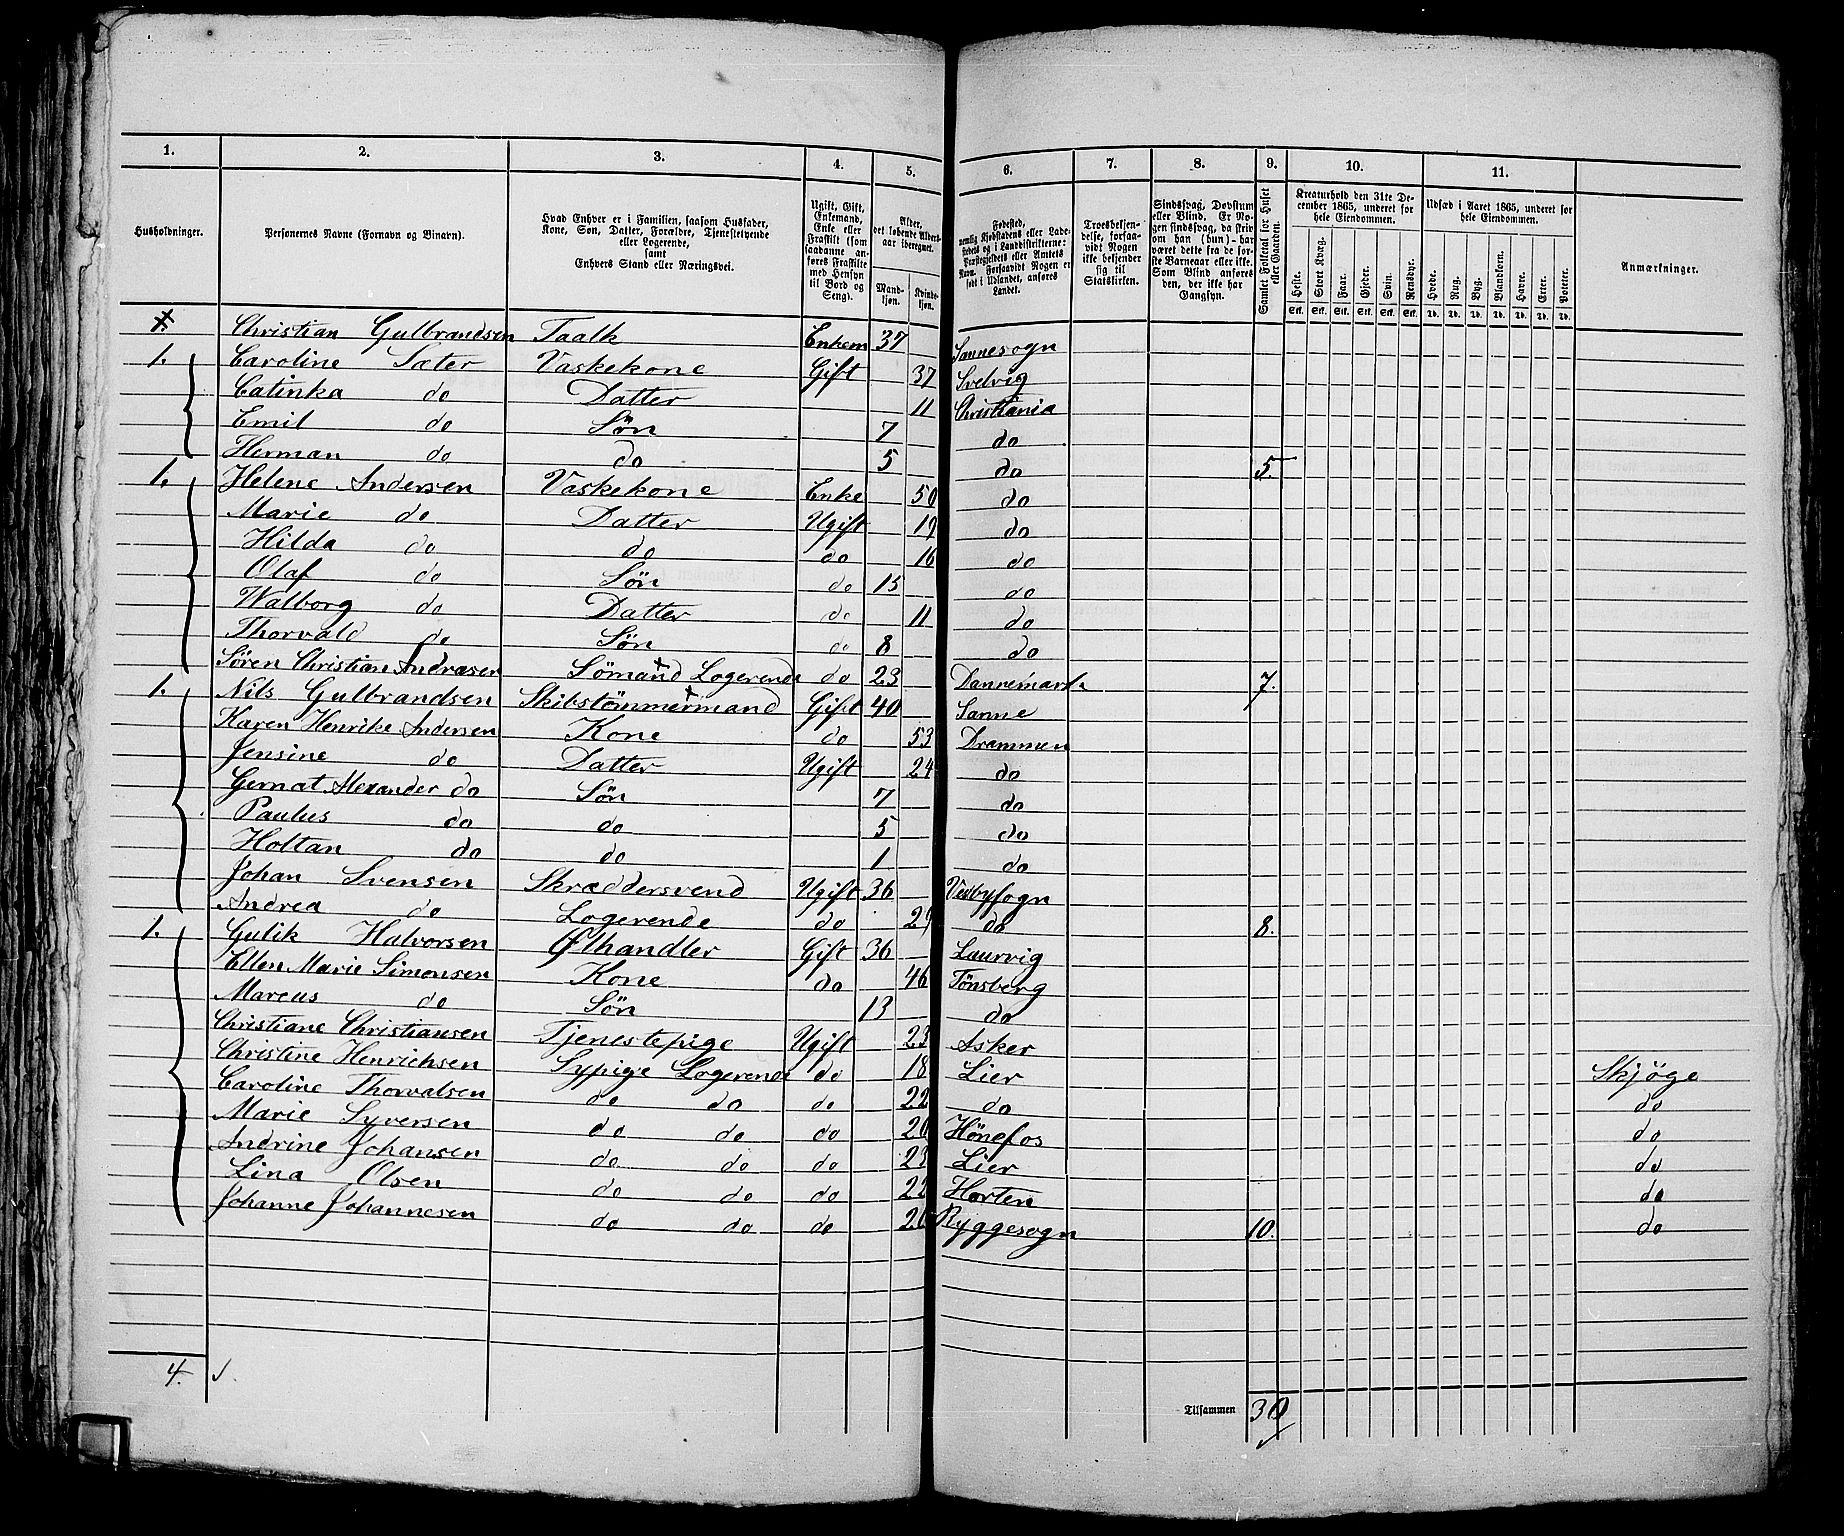 1. 2. 3. 4. 5. 6. 7. 8. 9. 10. 11.
Husholdninger.
Personernes Navne (Fornavn og Binavn).
Hvad Enhver er i Familien, saasom Husfader,
Kone, Søn, Datter, Forældre, Tjenestetyende
eller Logerende,
samt
Enhvers Stand eller Næringsvei.
Ugift, Gift,
Enkemand,
Enke eller
Fraskilt (som
saadanne an-
føres Fraskilte
med Hensyn
til Bord og
Seng).
Alder,
det løbende Alders-
aar iberegnet.
Mand-
kjøn.
Kvinde-
kjøn.
Fødested,
nemlig Kjøbstadens eller Lade-
stedets og i Landdistrikterne:
Præstegjeldets eller Amtets
Navn. Forsaavidt Nogen er
født i Udlandet, anføres
Landet.
Troesbekjen-
delse, forsaa-
vidt Nogen
ikke bekjender
sig til
Statskirken.
Sindssvag, Døvstum
eller Blind. Er No-
gen sindssvag, da skriv
om han (hun) har
været dette fra de før-
ste Barneaar eller ikke.
Som Blind anføres
den, der ikke har
Gangsyn.
Samlet Folketal for Huset
eller Gaarden.
Kreaturhold den 31te De-
cember 1865, underet for
hele Eiendommen.
Heste. Stort Kvæg. Faar. Gjeder. Svin. Rensdyr.
Stk. Stk. Stk. Stk. Stk. Stk.
Udsæd i Aaret 1865, underet for
hele Eiendommen.
Hvede. Rug. Byg. Blandkorn. Havre. Erter. Poteter.
Td. Td. Td. Td. Td. Td. Td.
Anmærkninger.
Christian Gulbrandsen Taalk Enkem 37 Sannesogn
1. Caroline Sæter Vaskekone Gift 37 Svelvig
Catinka do Datter 11 Christiania
Emil do Søn 7 do
Herman do do 5 do 5.
1. Helene Andersen Vaskekone Enke 50 do
Marie do Datter Ugift 19 do
Hilda do do do 16 do
Olaf do Søn do 15 do
Walborg do Datter do 11 do
Thorvald do Søn do 8 do
Søren Christian Andræsen Sömand Logerende do 23 Dannemark 7.
1. Nils Gulbrandsen Skibstömmermand Gift 40 Sanne
Karen Henrike Andersen Kone do 53 Drammen
Jensine do Datter Ugift 24 do
Gernat Alexander do Søn 7 do
Paulus do do 5 do
Holtan do do 1 do
Johan Svensen Skræddersvend Ugift 36 Vedbysogn
Andrea do Logerende do 29 do 8.
1. Gulik Halvorsen Ølhandler Gift 36 Laurvig
Ellen Marie Simonsen Kone do 46 Tönsberg
Marcus do Søn 13 do
Christiane Christiansen Tjenestepige Ugift 23 Asker
Christine Henrichsen Sypige Logerende do 18 Lier Skjøge
Caroline Thorvalsen do do do 22 do do
Marie Syversen do do do 20 Hönefos do
Andrine Johansen do do do 23 Lier do
Lina Olsen do do do 22 Horten do
Johanne Johannesen do do do 20 Ryggesogn 10. do
4.
Tilsammen 30